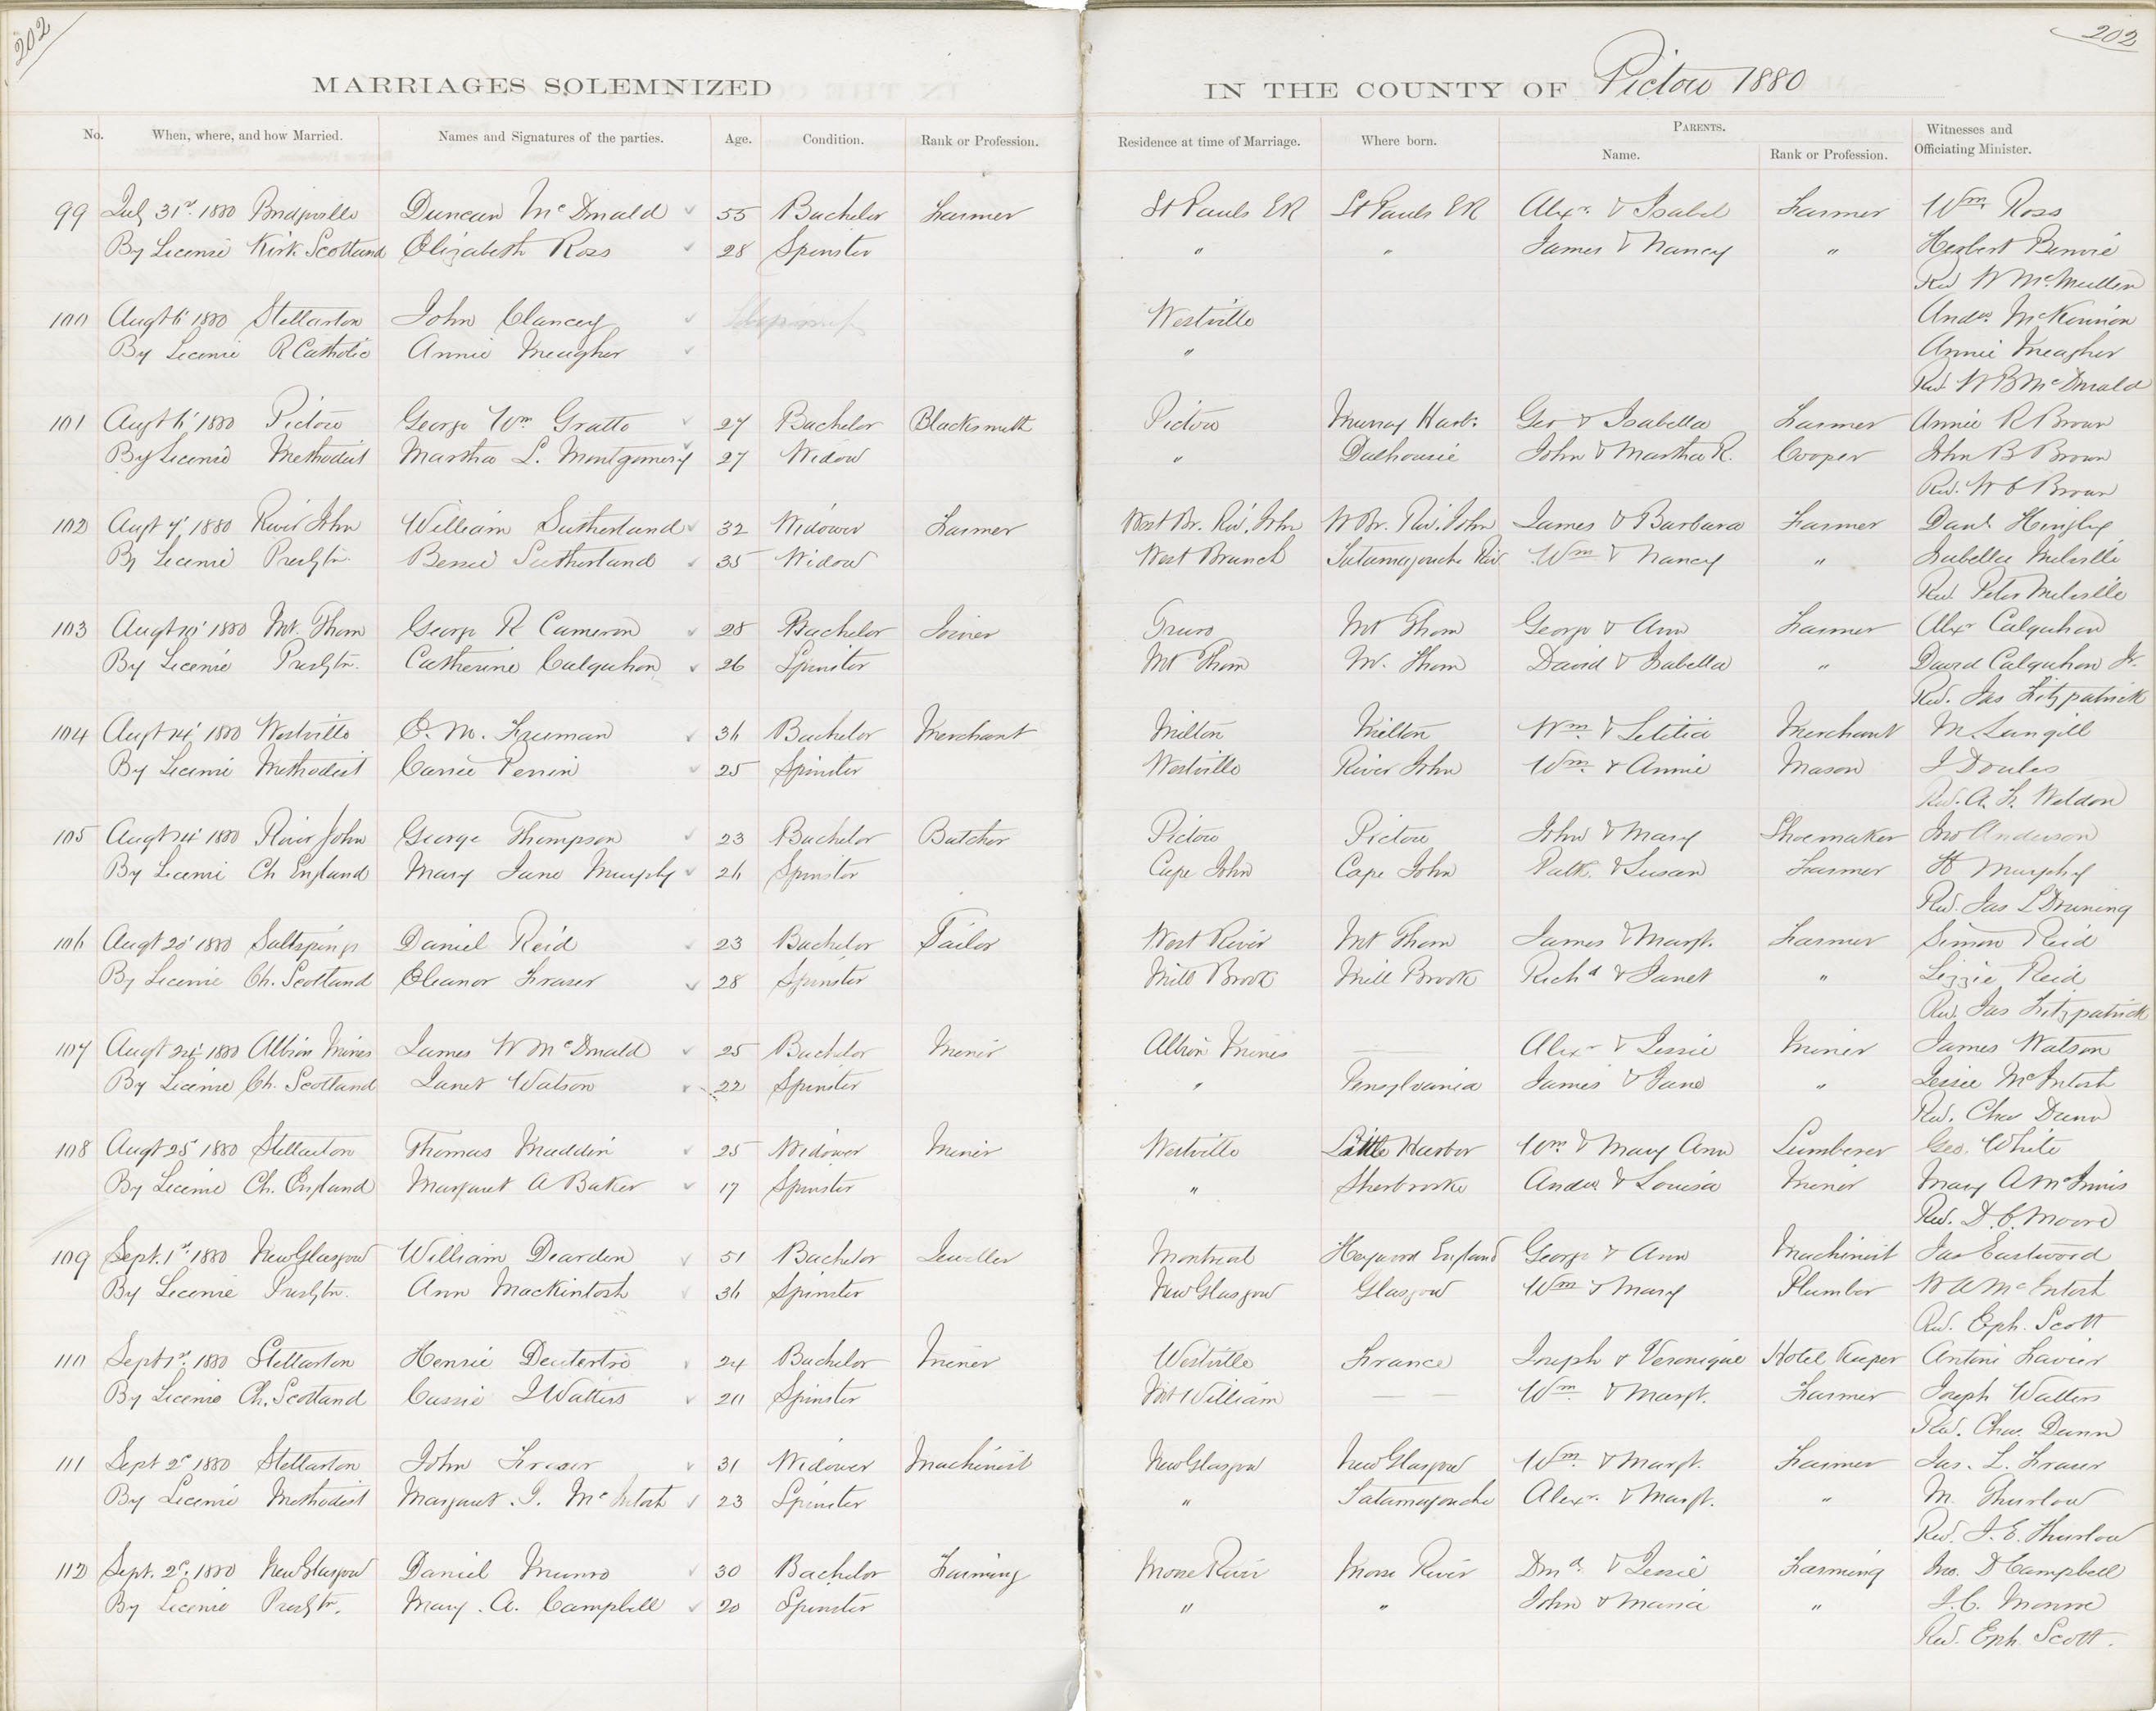 202
202
MARRIAGES SOLEMNIZED IN THE COUNTY OF Pictou 1880
No. When, where, and how Married. Names and Signatures of the parties. Age. Condition. Rank or Profession. Residence at time of Marriage. Where born. PARENTS. Name. Rank or Profession. Witnesses and Officiating Minister.
99 July 31st 1880 Bridgeville Duncan McDonald 55 Bachelor Farmer St Pauls ER St Pauls ER Alexr. & Isabel Farmer Wm Ross
By License Kirk Scotland Elizabeth Ross 28 Spinster " " James & Nancy " Herbert Benvie
Rev W McMullen
100 Augt 6' 1880 Stellarton John Clancey Westville Andw. McKinnon
By License R Catholic Annie Meagher " Annie Meagher
Rev. W B McDonald
101 Augt 6' 1880 Pictou George Wm Gratto 27 Bachelor Blacksmith Pictou Murray Harb. Geo & Isabella Farmer Annie R Brown
By License Methodist Martha L. Montgomery 27 Widow " Dalhousie John & Martha R. Cooper John B Brown
Rev. W C Brown
102 Augt 7' 1880 River John William Sutherland 32 Widower Farmer West Br. Riv. John W Br. Riv. John James & Barbara Farmer Danl Hingley
By License Presbtn. Bessie Sutherland 35 Widow West Branch Tatamagouche Riv Wm & Nancy " Isabella Melville
Rev. Peter Melville
103 Augt 10' 1880 Mt. Thom George R Cameron 28 Bachelor Joiner Truro Mt Thom George & Ann Farmer Alexr Calquhon
By License Presbtn. Catherine Calquhon 26 Spinster Mt Thom Mt. Thom David & Isabella " David Calquhon Jr.
Rev. Jas Fitzpatrick
104 Augt 14' 1880 Westville C. M. Freeman 36 Bachelor Merchant Milton Milton Wm & Letitia Merchant M. Langill
By License Methodist Carrie Perrin 25 Spinster Westville River John Wm & Annie Mason J Doules
Rev. A. F. Weldon
105 Augt 14' 1880 River John George Thompson 23 Bachelor Butcher Pictou Pictou John & Mary Shoemaker Jno Anderson
By License Ch England Mary Jane Murphy 26 Spinster Cape John Cape John Patk. & Susan Farmer H Murphy
Rev. Jas L Downing
106 Augt 20' 1880 Saltsprings Daniel Reid 23 Bachelor Tailor West River Mt Thom James & Margt. Farmer Simon Reid
By License Ch. Scotland Eleanor Fraser 28 Spinster Mill Brook Mill Brook Richd & Janet " Lizzie Reid
Rev. Jas Fitzpatrick
107 Augt 24' 1880 Albion Mines James W McDonald 25 Bachelor Miner Albion Mines —— Alexr & Jessie Miner James Watson
By License Ch. Scotland Janet Watson 22 Spinster " Pensylvania James & Jane " Jessie McIntosh
Rev. Chas Dunn
108 Augt 25' 1880 Stellarton Thomas Maddin 25 Widower Miner Westville Little Harbor Wm & Mary Ann Lumberer Geo. White
By License Ch. England Margaret A Baker 17 Spinster " Sherbrooke Andw & Louisa Miner Mary A McInnis
Rev. D. C. Moore
109 Sept. 1st. 1880 New Glasgow William Dearden 51 Bachelor Jeweller Montreal Heywood England George & Ann Machinist Jas Eastwood
By License Presbtn. Ann Mackintosh 36 Spinster New Glasgow Glasgow Wm & Mary Plumber W A McIntosh
Rev. Eph. Scott
110 Sept 1st. 1880 Stellarton Henrie 24 Bachelor Miner Westville France Joseph & Veronique Hotel Keeper Antoni Lavier
By License Ch. Scotland Cassie J Watters 20 Spinster Mt William — — Wm & Margt. Farmer Joseph Watters
Rev. Chas. Dunn
111 Sept 2d 1880 Stellarton John Fraser 31 Widower Machinist New Glasgow New Glasgow Wm & Margt. Farmer Jas. L. Fraser
By License Methodist Margaret. J. McIntosh 23 Spinster " Tatamagouche Alexr. & Margt. " M. Thurlow
Rev. J. E. Thurlow
112 Sept. 2d. 1880 New Glasgow Daniel Munro 30 Bachelor Farming Moose River Moose River Dond. & Jessie Farming Jno. D Campbell
By License Presbtn. Mary. A. Campbell 20 Spinster " " John & Maria " J. C. Munro
Rev. Eph. Scott.